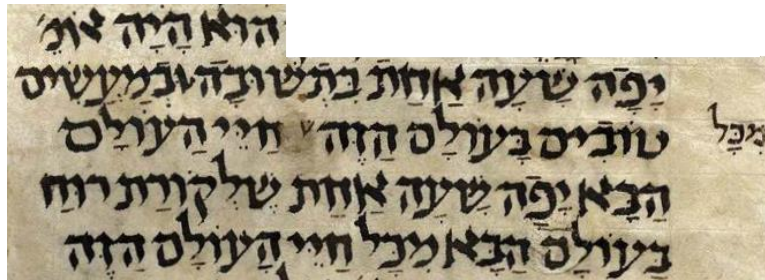 הוּא הָיָה אומ׳
יָפָה שָׁעָה אַחַת בִּתְשׁוּבָה וּבְמַעֲשִׂים
מִכָּל
טוֹבִים בָּעוֹלָם הַזֶּה חַיֵּי הָעוֹלָם
הַבָּא יָפָה שָׁעָה אַחַת שֶׁלְּקוֹרַת רוּחַ
בָּעוֹלָם הַבָּא מִכָּל חַיֵּי הָעוֹלָם הַזֶּה